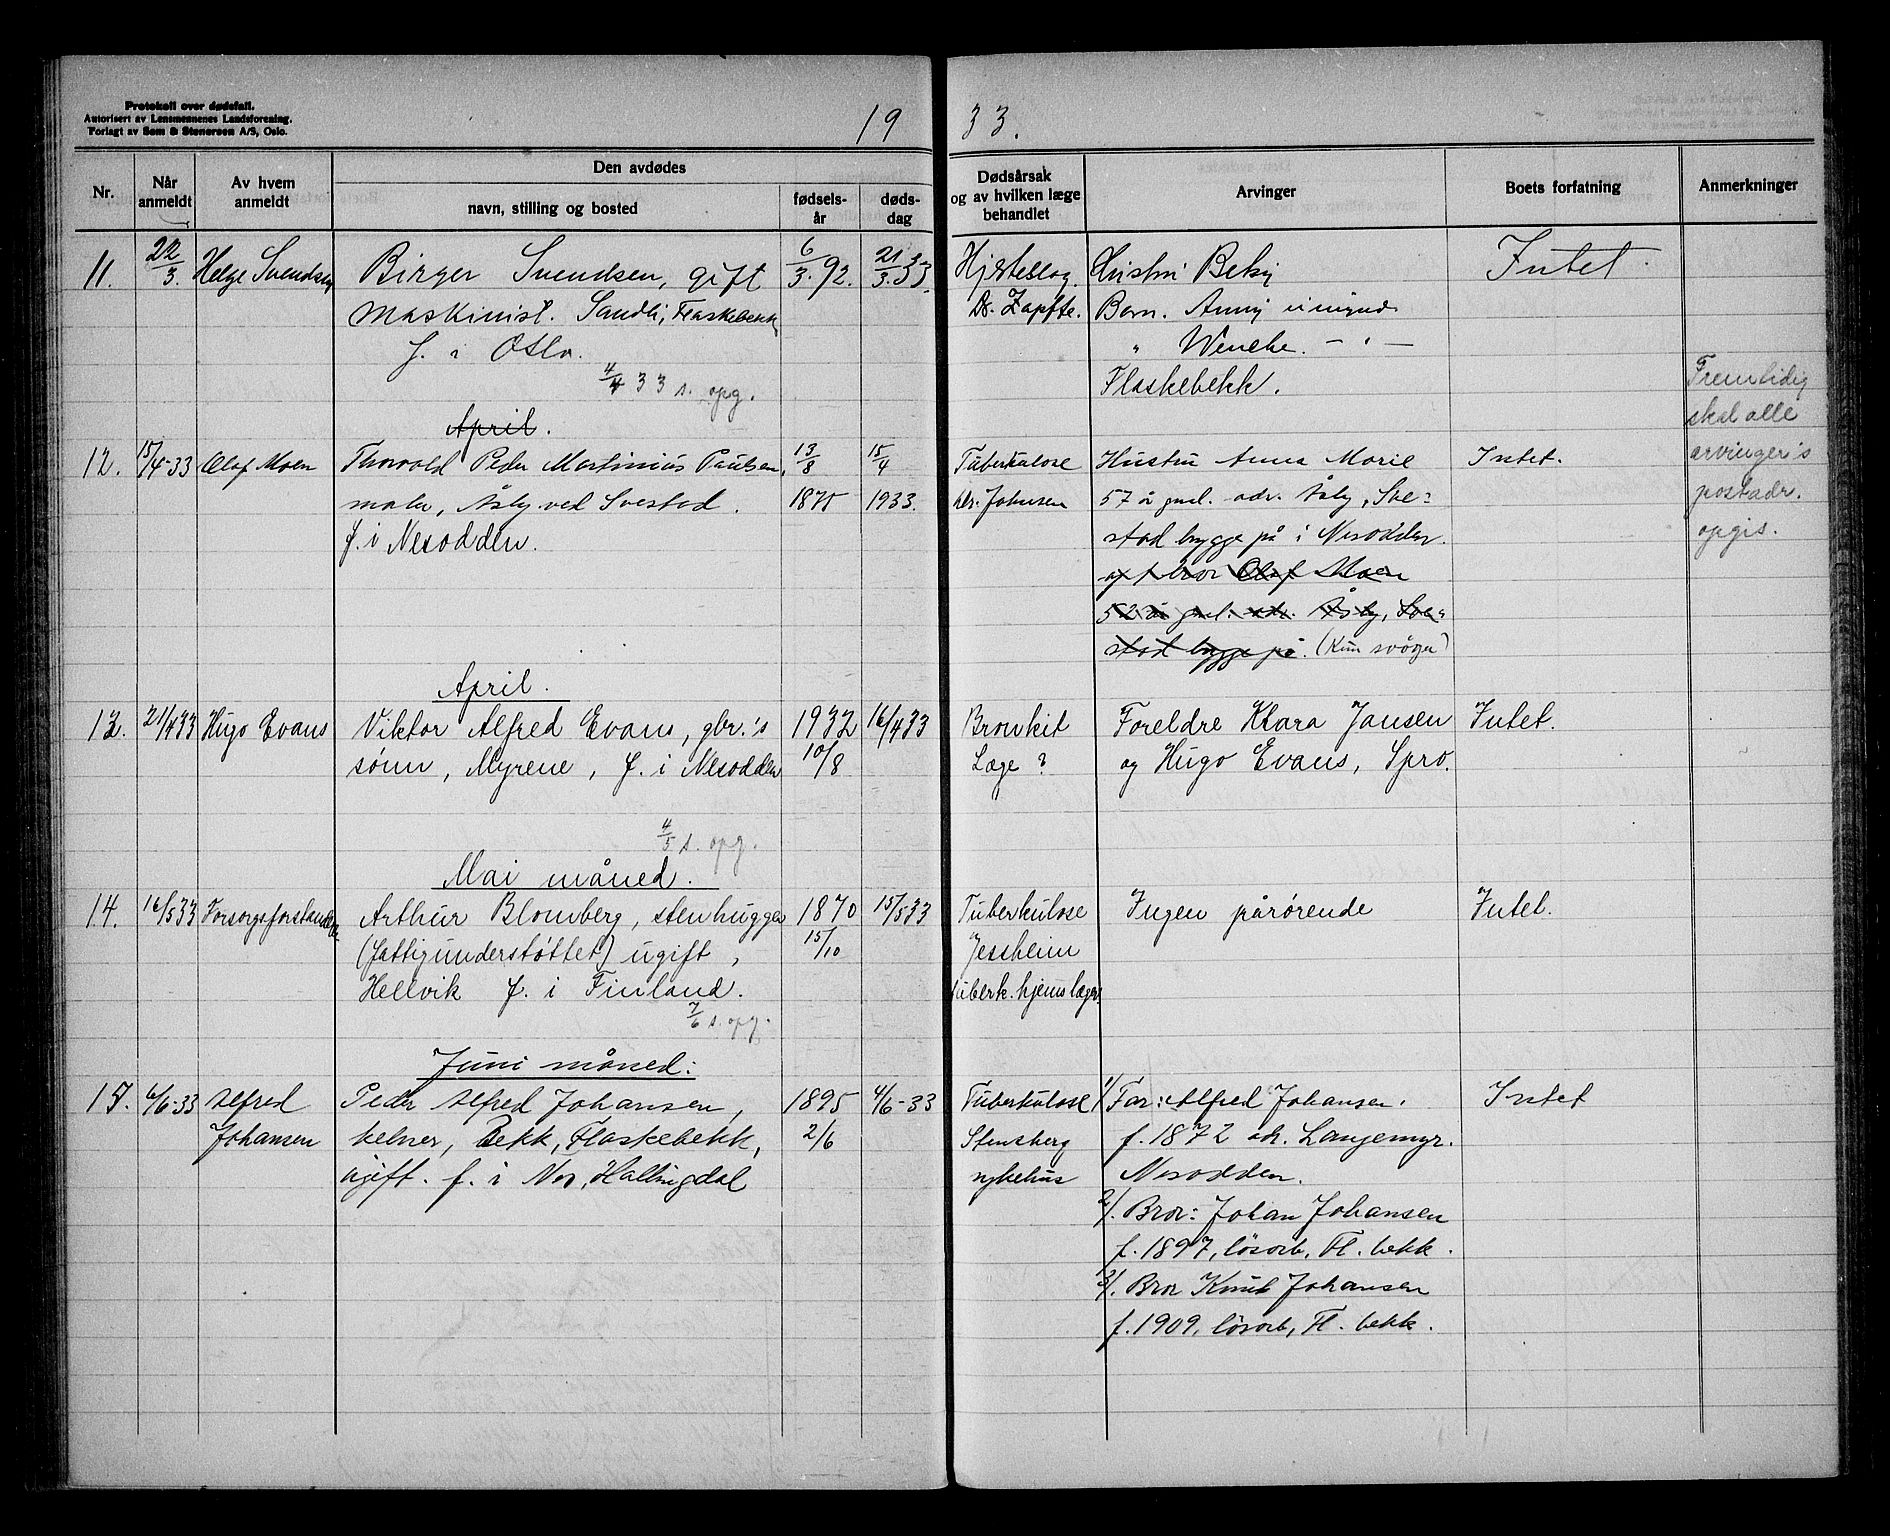 Protokoll over dødsfall.
Autorisert av Lensmennenes Landsforening.
Forlagt av Sem & Stenersen A/S, Oslo.
1933.
Nr.
Når anmeldt
Av hvem anmeldt
Den avdødes
navn, stilling og bosted
fødselsår
dødsdag
Dødsårsak og av hvilken læge behandlet
Arvinger
Boets forfatning
Anmerkninger
11. 22/3. Helge Svendsen
Birger Svendsen, gift
maskinist. Sandli, Flaskebekk
f. i Oslo.
4/4 33 s. opg.
6/3. 92.
21/3. 33.
Hjerteslag.
Dr. Zapffe.
Hustru Betsy
Barn. Anny umynd.
" Wenche. - " -
Flaskebekk.
Intet.
Fremtidig
skal alle
arvinger's
postadr.
opgis.
April.
12. 15/4-33 Olaf Moen
Thorvald Peder Martinius Paulsen,
maler, Åsly ved Svestad.
f. i Nesodden.
13/8
1875
15/4
1933.
Tuberkulose
Dr. Johnsen
Hustru Anna Marie
57 år gml. adr. Åsly, Sve-
stad brygge på i Nesodden.
og bror Olaf Moen
52 år gml. adr. Åsly, Sve-
stad brygge på. (Kun svoger)
Intet.
April.
13. 21/4 33 Hugo Evans
Viktor Alfred Evans, gbr.'s
sønn, Myrene, f. i Nesodden
4/5 s. opg.
1932
10/8
16/4 33
Bronkit
Læge ?
Foreldre Klara Jansen
og Hugo Evans, Spro.
Intet.
Mai måned.
14. 16/5 33 Forsorgsforstanderen
Arthur Blomberg, stenhugger
(fattigunderstøttet) ugift,
Hellvik f. i Finland.
7/6 s. opg.
1870
15/10
15/5 33
Tuberkulose
Jessheim
tuberk. hjems læger.
Ingen pårørende
Intet.
Juni måned:
15. 6/6-33 Alfred
Johansen
Peder Alfred Johansen,
kelner, Bekk, Flaskebekk,
ugift. f. i Nes, Hallingdal
1895
2/6
4/6-33
Tuberkulose
Stensberg
sykehus
1/ Far: Alfred Johansen.
f. 1872 adr. Langemyr.
Nesodden.
2/. Bror: Johan Johansen
f. 1897, løsarb, Fl. bekk.
3/. Bror Knut Johansen
f. 1909, løsarb, Fl. bekk.
Intet